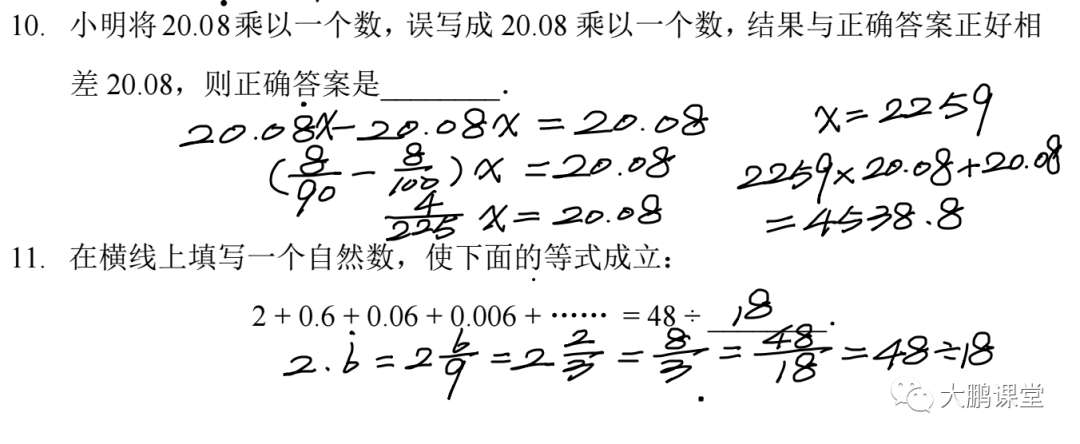 10. 小明将 20.08̇ 乘以一个数，误写成 20.08 乘以一个数，结果与正确答案正好相
差 20.08，则正确答案是________.
20.08̇x-20.08x=20.08
(8/90-8/100)x=20.08
4/225 x=20.08
x=2259
2259×20.08+20.08
=4538.8
11. 在横线上填写一个自然数，使下面的等式成立：
2 + 0.6 + 0.06 + 0.006 + …… = 48 ÷ 18.
2.6̇=2 6/9=2 2/3=8/3=48/18=48÷18
大鹏课堂